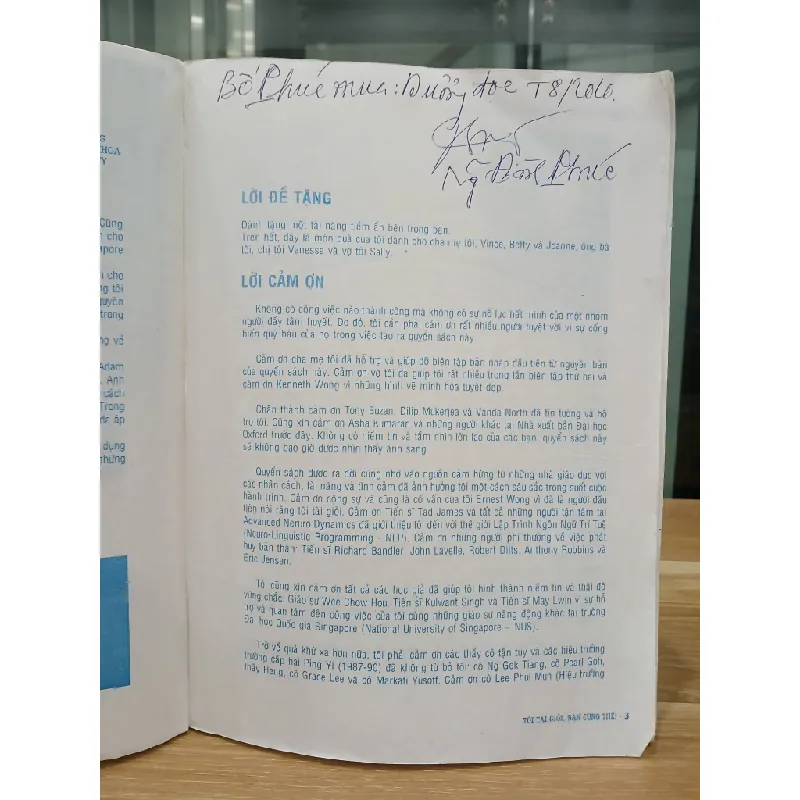 HOA
Y
Cũng
cho
apore
cho
tôi
trong
Adam
Anh
cách
Trong
áp
dụng
những
Bố Phúc mua: Dưỡng đọc T8/2010.
Ng Đình Phúc
LỜI ĐỀ TẶNG
Dành tặng một tài năng tiềm ẩn bên trong bạn.
Trên hết, đây là món quà của tôi dành cho cha mẹ tôi, Vince, Betty và Joanne, ông bà
tôi, chị tôi Vanessa và vợ tôi Sally.
LỜI CẢM ƠN
Không có công việc nào thành công mà không có sự nỗ lực hết mình của một nhóm
người đầy tâm huyết. Do đó, tôi cần phải cảm ơn rất nhiều người tuyệt vời vì sự cống
hiến quý báu của họ trong việc tạo ra quyển sách này.
Cảm ơn cha mẹ tôi đã hỗ trợ và giúp đỡ biên tập bản nháp đầu tiên từ nguyên bản
của quyển sách này. Cảm ơn vợ tôi đã giúp tôi rất nhiều trong lần biên tập thứ hai và
cảm ơn Kenneth Wong vì những hình vẽ minh họa tuyệt đẹp.
Chân thành cảm ơn Tony Buzan, Dilip Mukerjea và Vanda North đã tin tưởng và hỗ
trợ tôi. Cũng xin cảm ơn Asha Kumaran và những người khác tại Nhà xuất bản Đại học
Oxford trước đây. Không có niềm tin và tầm nhìn lớn lao của các bạn, quyển sách này
sẽ không bao giờ được nhìn thấy ánh sáng.
Quyển sách được ra đời cũng nhờ vào nguồn cảm hứng từ những nhà giáo dục với
các nhân cách, tài năng và tình cảm đã ảnh hưởng tới một cách sâu sắc trong suốt cuộc
hành trình. Cảm ơn cộng sự và cũng là cố vấn của tôi Ernest Wong vì đã là người đầu
tiên nói rằng tôi tài giỏi. Cảm ơn Tiến sĩ Tad James và tất cả những người tận tâm tại
Advanced Neruro Dynamics đã giới thiệu tôi đến với thế giới Lập Trình Ngôn Ngữ Trí Tuệ
(Neuro-Linguistic Programming - NLP). Cảm ơn những người phi thường về việc phát
huy bản thân Tiến sĩ Richard Bandler, John Lavelle, Robert Dilts, Anthony Robbins và
Eric Jensen.
Tôi cũng xin cảm ơn tất cả các học giả đã giúp tôi hình thành niềm tin và thái độ
vững chắc. Giáo sư Wee Chow Hou, Tiến sĩ Kulwant Singh và Tiến sĩ May Lwin vì sự hỗ
trợ và quan tâm đến công việc của tôi cùng những giáo sư năng động khác tại trường
Đại học Quốc gia Singapore (National University of Singapore – NUS).
Trở về quá khứ xa hơn nữa, tôi phải cảm ơn các thầy cô tận tụy và các hiệu trưởng
trường cấp hai Ping Yi (1987-90) đã không từ bỏ tôi: cô Ng Gek Tiang, cô Pearl Goh,
thầy Heng, cô Grace Lee và cô Markati Yusoff. Cảm ơn cô Lee Phui Mun (Hiệu trưởng
TÔI TÀI GIỎI, BẠN CŨNG THẾ! - 3